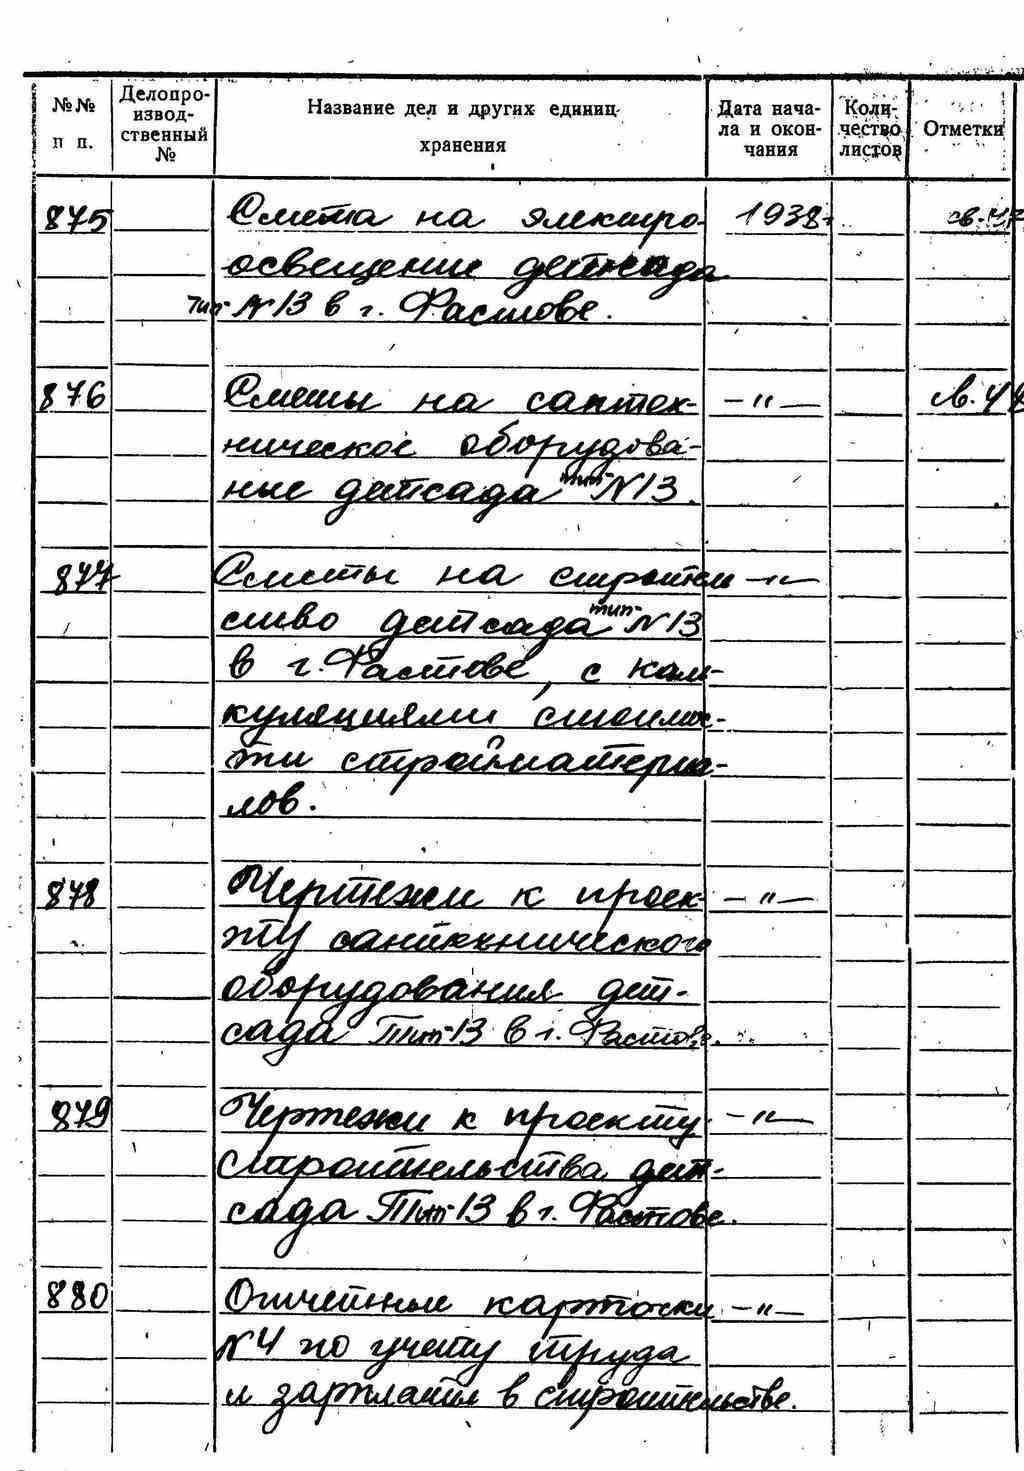 №№ п п. Делопроизвод-ственный № Название дел и других единиц хранения Дата начала и окончания Количество листов Отметки
875 Смета на электро- 1938г. св.47
освещение детсада
тип №13 в г. Фастове.
876 Сметы на сантех- -"- св.44
ническое оборудова-
ние детсада тип-№13.
877 Сметы на строитель -"-
ство детсада тип-№13
в г. Фастове, с каль-
куляциями стоимос-
ти стройматериа-
лов.
878 Чертежи к проек- -"-
ту сантехнического
оборудования дет-
сада Тип-13 в г. Фастове.
879 Чертежи к проекту -"-
строительства дет-
сада Тип-13 в г. Фастове.
880 Отчетные карточки -"-
№4 по учету труда
и зарплаты в строительстве.